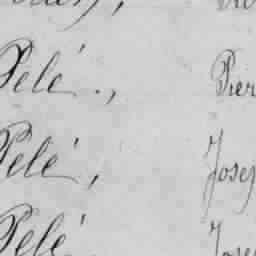 Pelé., Pier
Pelé, Josep
Pelé Josep